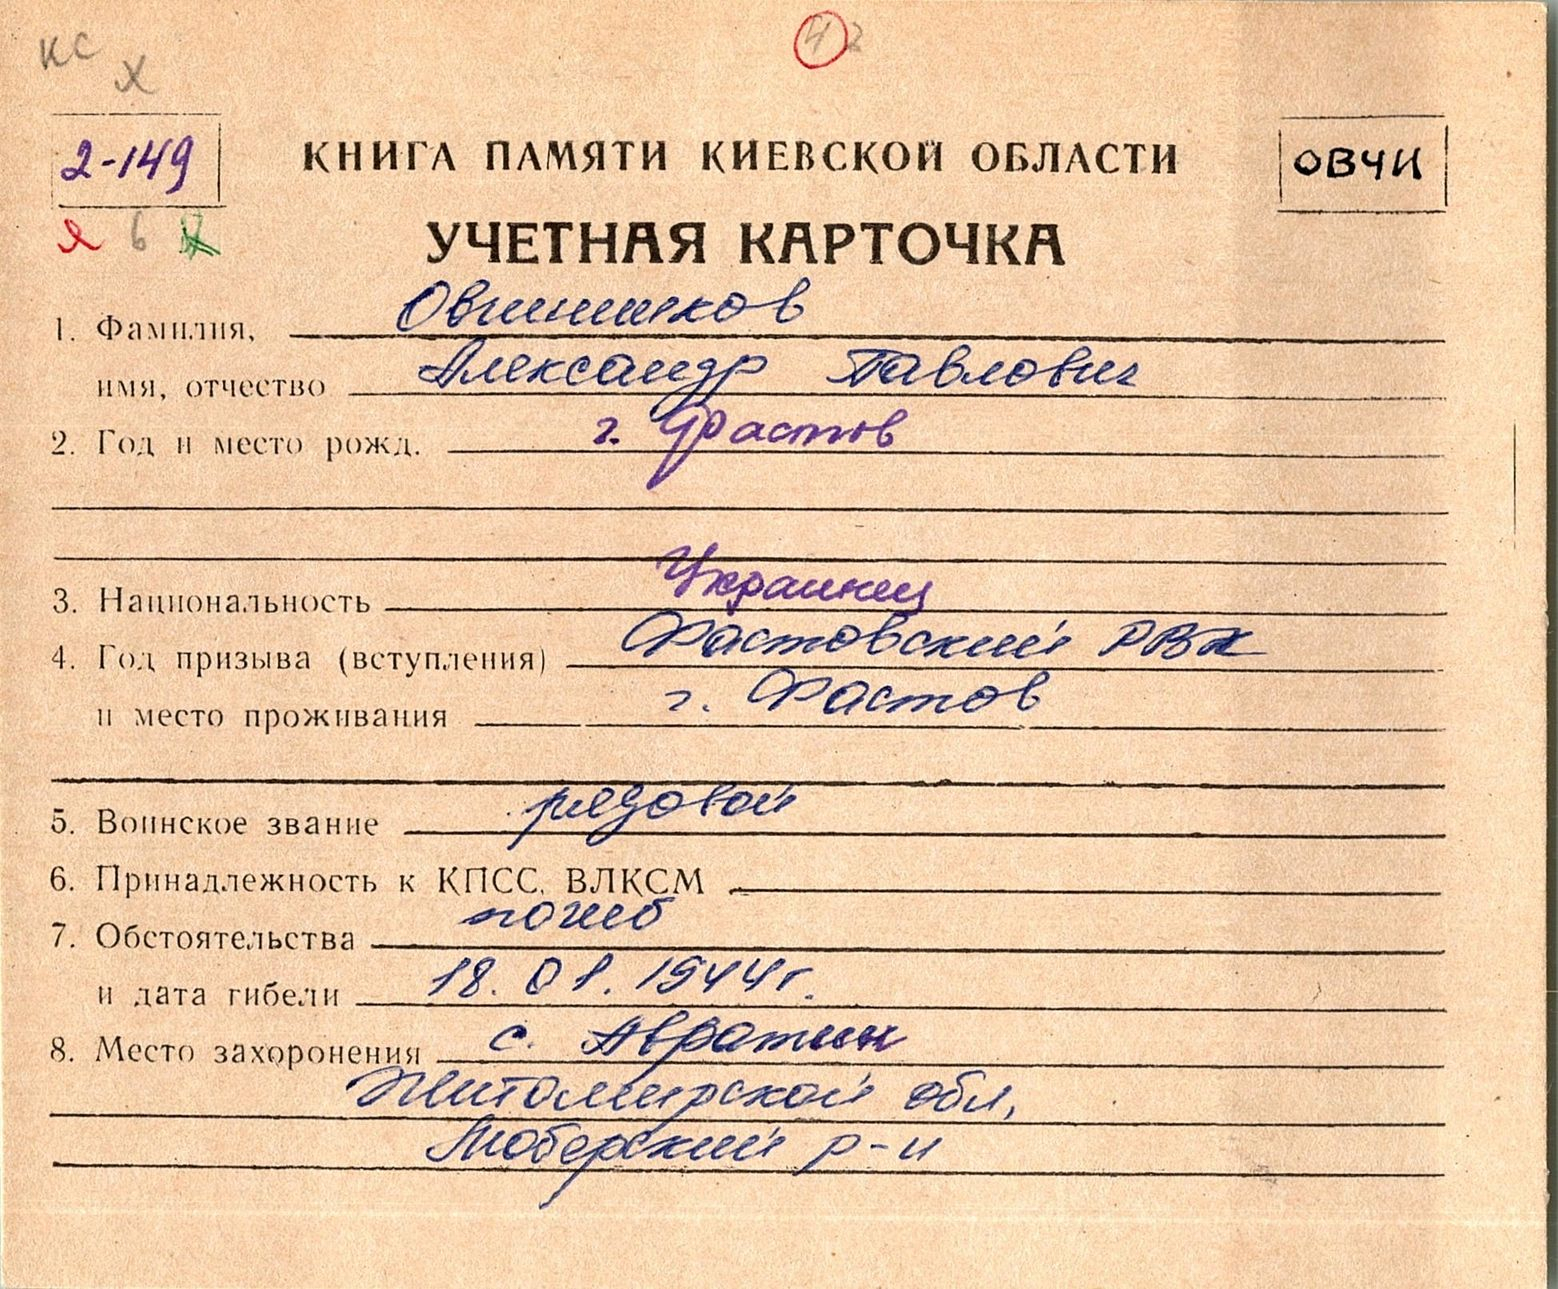 КС
Х
42
2-149
КНИГА ПАМЯТИ КИЕВСКОЙ ОБЛАСТИ
ОВЧИ
6
УЧЕТНАЯ КАРТОЧКА
1. Фамилия, Овчинников
имя, отчество Александр Павлович
2. Год и место рожд. г. Фастов
3. Национальность Украинец
4. Год призыва (вступления) Фастовский РВК
и место проживания г. Фастов
5. Воинское звание рядовой
6. Принадлежность к КПСС, ВЛКСМ
7. Обстоятельства погиб
и дата гибели 18.01.1944г.
8. Место захоронения с. Авратин
Житомирской обл,
Люберский р-н